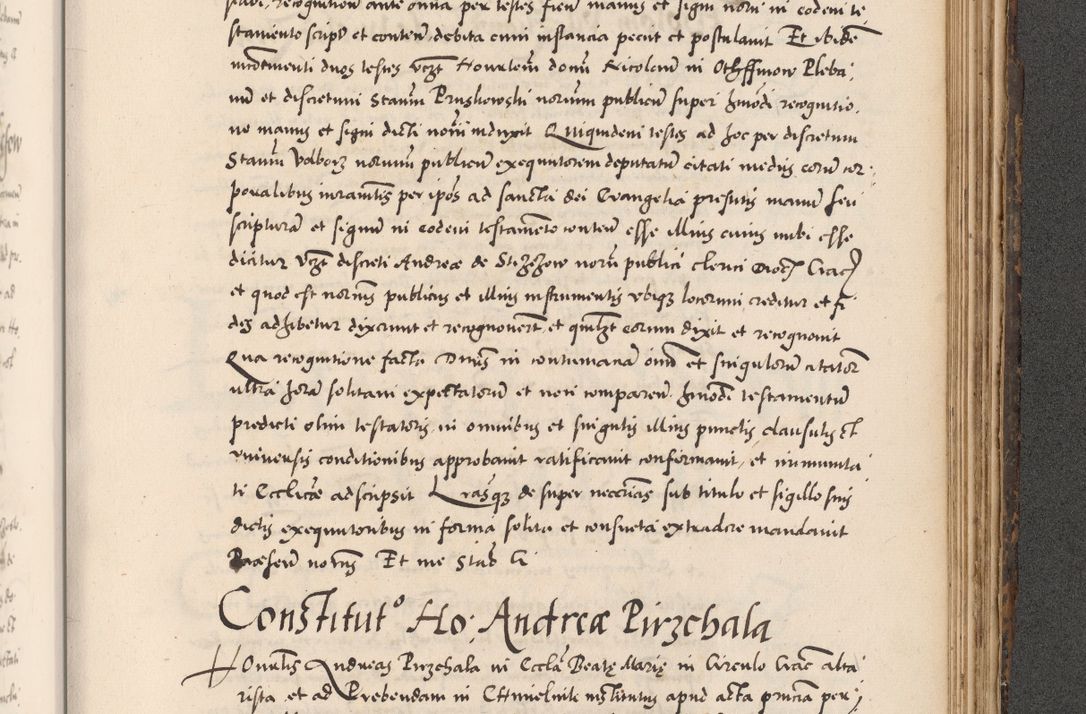 stabi, recognitionem ante omnia per testes fieri manus et signi notarii in eodem te
stamento script et content, debita cum instancia peciit et postulavit Et ibidē
duos testes vczt Honorlem donū Nicolaum in Othffinow Pleba,
nū et discretum Stanm Pruskowski notarium publicū super hmōdi recognitio,
ne manus et signi dicti notarii induxit Quiquidem testes ad hoc per discretum
Stanm Volborz notarium publicū exequutorem deputatū citati medijs eorū cor,
poralibus iuramtis per ipos ad sancta dei Evangelia prestitis manū seu
scripturā et signum in eodem testamēto contentū esse illius cuius mihi esse
dicitur vczt discreti Andreæ de Stezezow notarii publici clerici Dioc Crac
et quod est notarius publicus et illius instrumentis ubiqz locorum creditur et fi
des adhibetur dixerunt et recognoverūt, et quilibet eorum dixit et recognovit
Qua recognitione facta Dnus in contumaciā oīm et singulorū citator
ultra horā solitam expectatorū et non comparen. hmōdi testamentū
predicti olim testatoris in omnibus et singulis illius punctis clausulis et
universis conditionibus approbavit ratificavit confirmavit, et immunita
ti Ecclicæ adscripsit Lrasqz de super neccrias sub titulo et sigillo suis
dictis exequutoribus in forma solita et consueta extradere mandavit
Præsen notrijs Et me Stab G
Constitut° Ho: Andreæ Pirzchala
Honlis Andreas Pirzchala in Eccla Beatę Marię in Circulo Crac alta
rista et ad Prebendam in Chmielnik institutus apud acta pricia per,